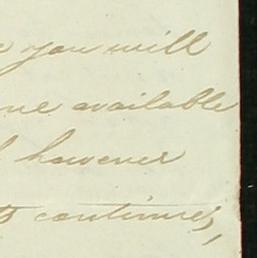 you will
one available
however
continues,